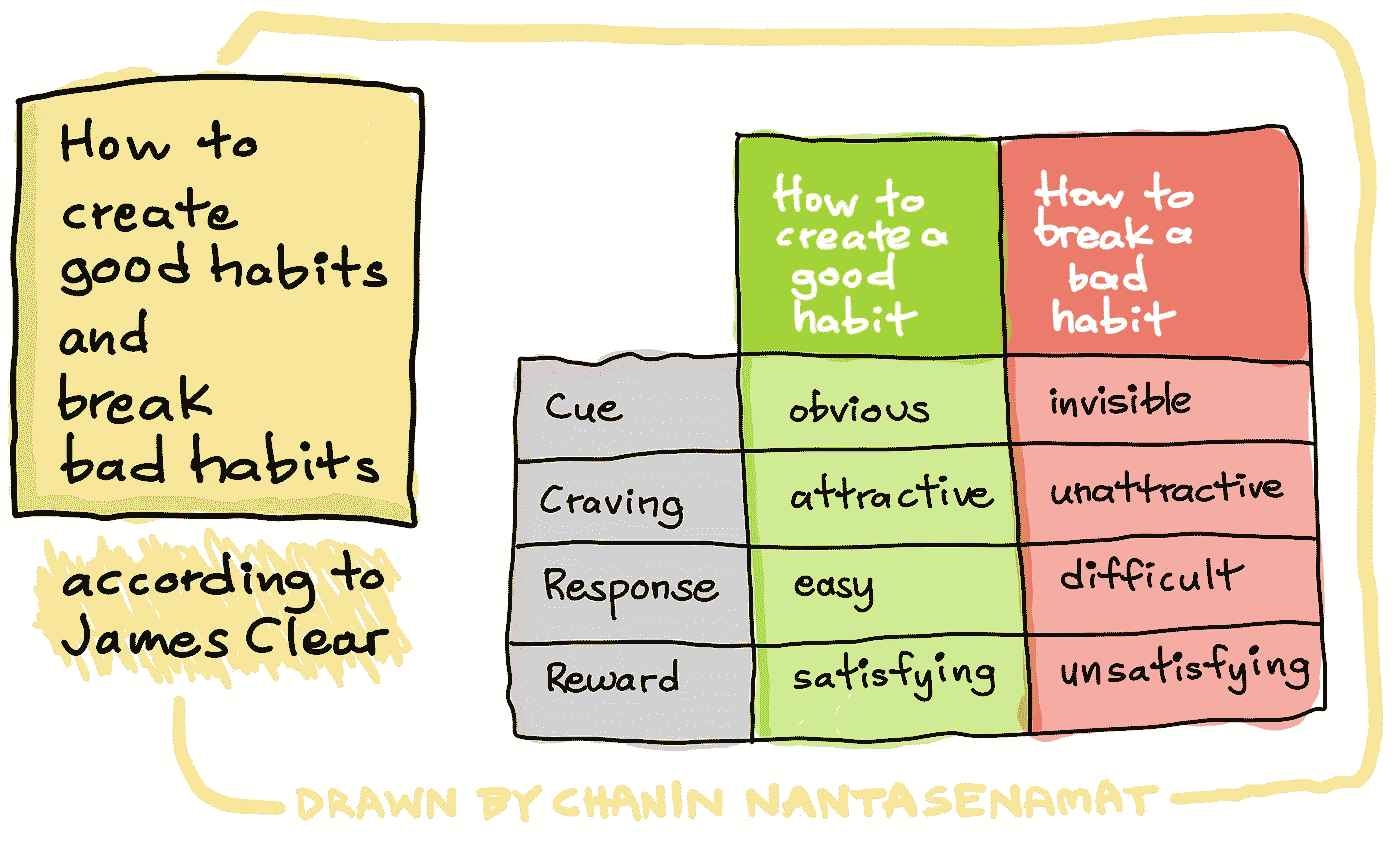 How to
create
good habits
and
break
bad habits
according to
James Clear
How to
create a
good
habit
How to
break a
bad
habit
Cue
obvious
invisible
Craving
attractive
unattractive
Response
easy
difficult
Reward
satisfying
unsatisfying
DRAWN BY CHANIN NANTASENAMAT